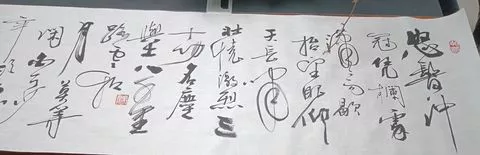 怒髮沖
冠凭闌處
瀟瀟雨歇
抬望眼仰
天長嘯
壯懷激烈三
十功名塵
與土八千里
路雲和
月莫等
閑白了少
年頭